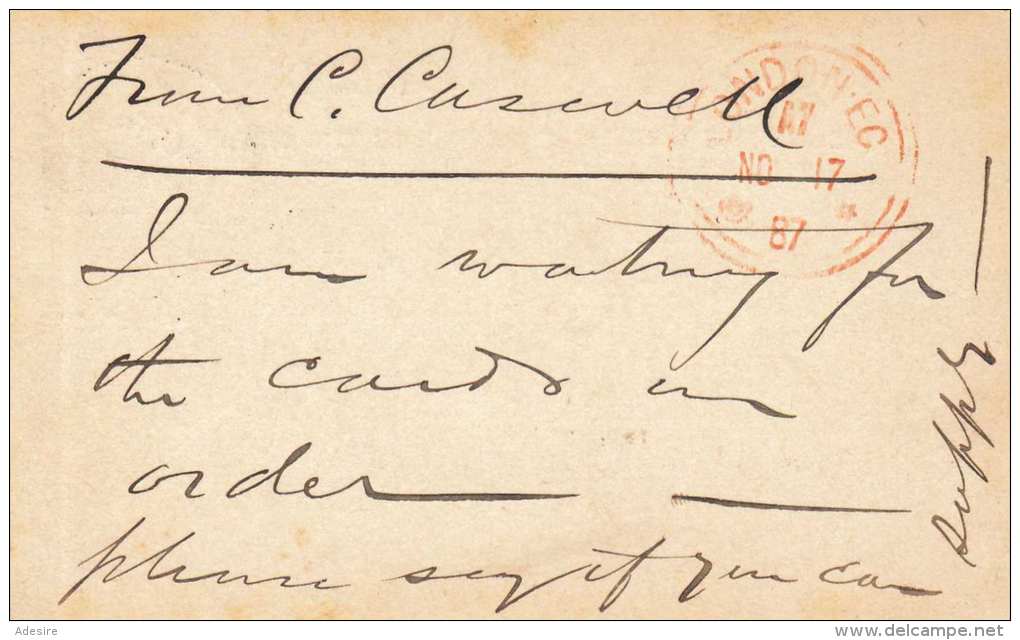 From C. Caswell
LONDON·EC
A7
NO 17
87
I am waiting for
the cards on
order
please say if you can
supply
Adesire
delcampe.net